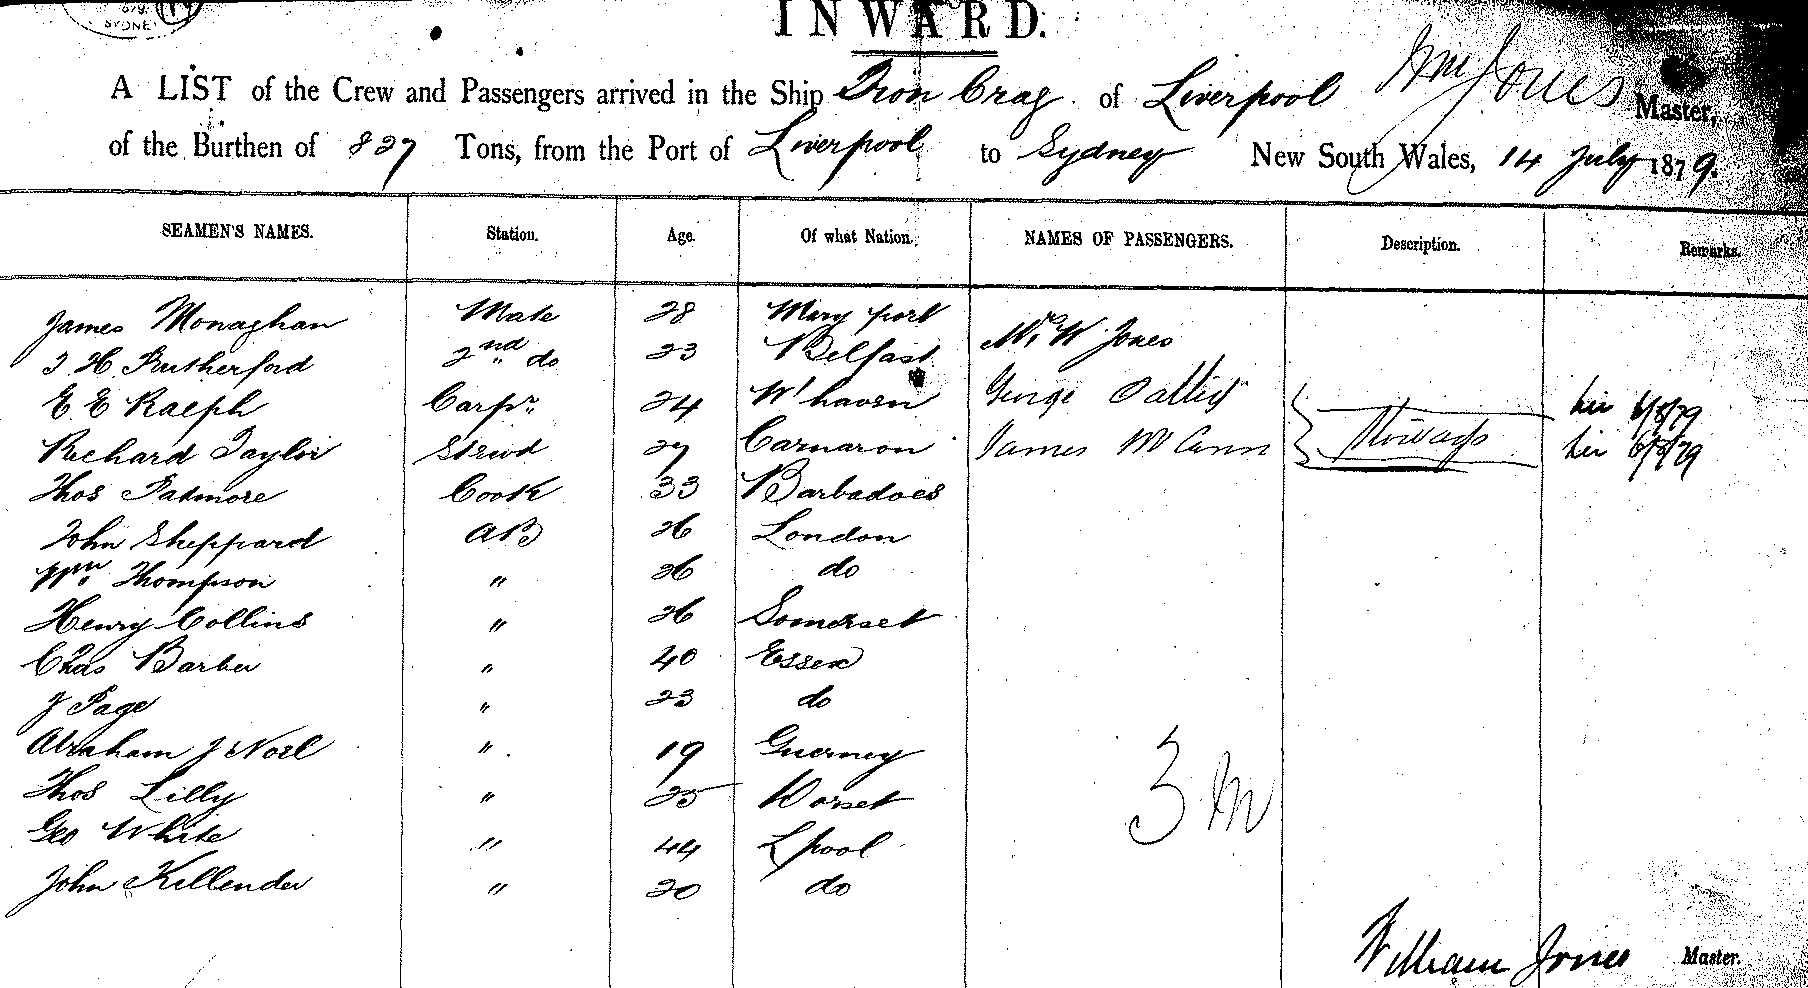 SYDNEY
INWARD.
A LIST of the Crew and Passengers arrived in the Ship Iron Crag of Liverpool Wm Jones Master,
of the Burthen of 827 Tons, from the Port of Liverpool to Sydney New South Wales, 14 July 1879.
SEAMEN'S NAMES. Station. Age. Of what Nation. NAMES OF PASSENGERS. Description. Remarks.
James Monaghan Mate 28 Mary port Mrs W Jones
J H Rutherford 2nd do 23 Belfast
E E Ralph Carpr 24 W'haven George
Richard Taylor Stewd 27 Carnaron James McCann Stowaways
Thos Padmore Cook 33 Barbadoes
John Sheppard AB 26 London
Wm Thompson " 26 do
Henry Collins " 26 Somerset
Chas Barber " 40 Essex
J Page " 23 do
Abraham J Noel " 19 Guerney
Thos Lilly " 25 Dorset
Geo White " 44 Lpool
John Killender " 20 do
3 m
William Jones Master.